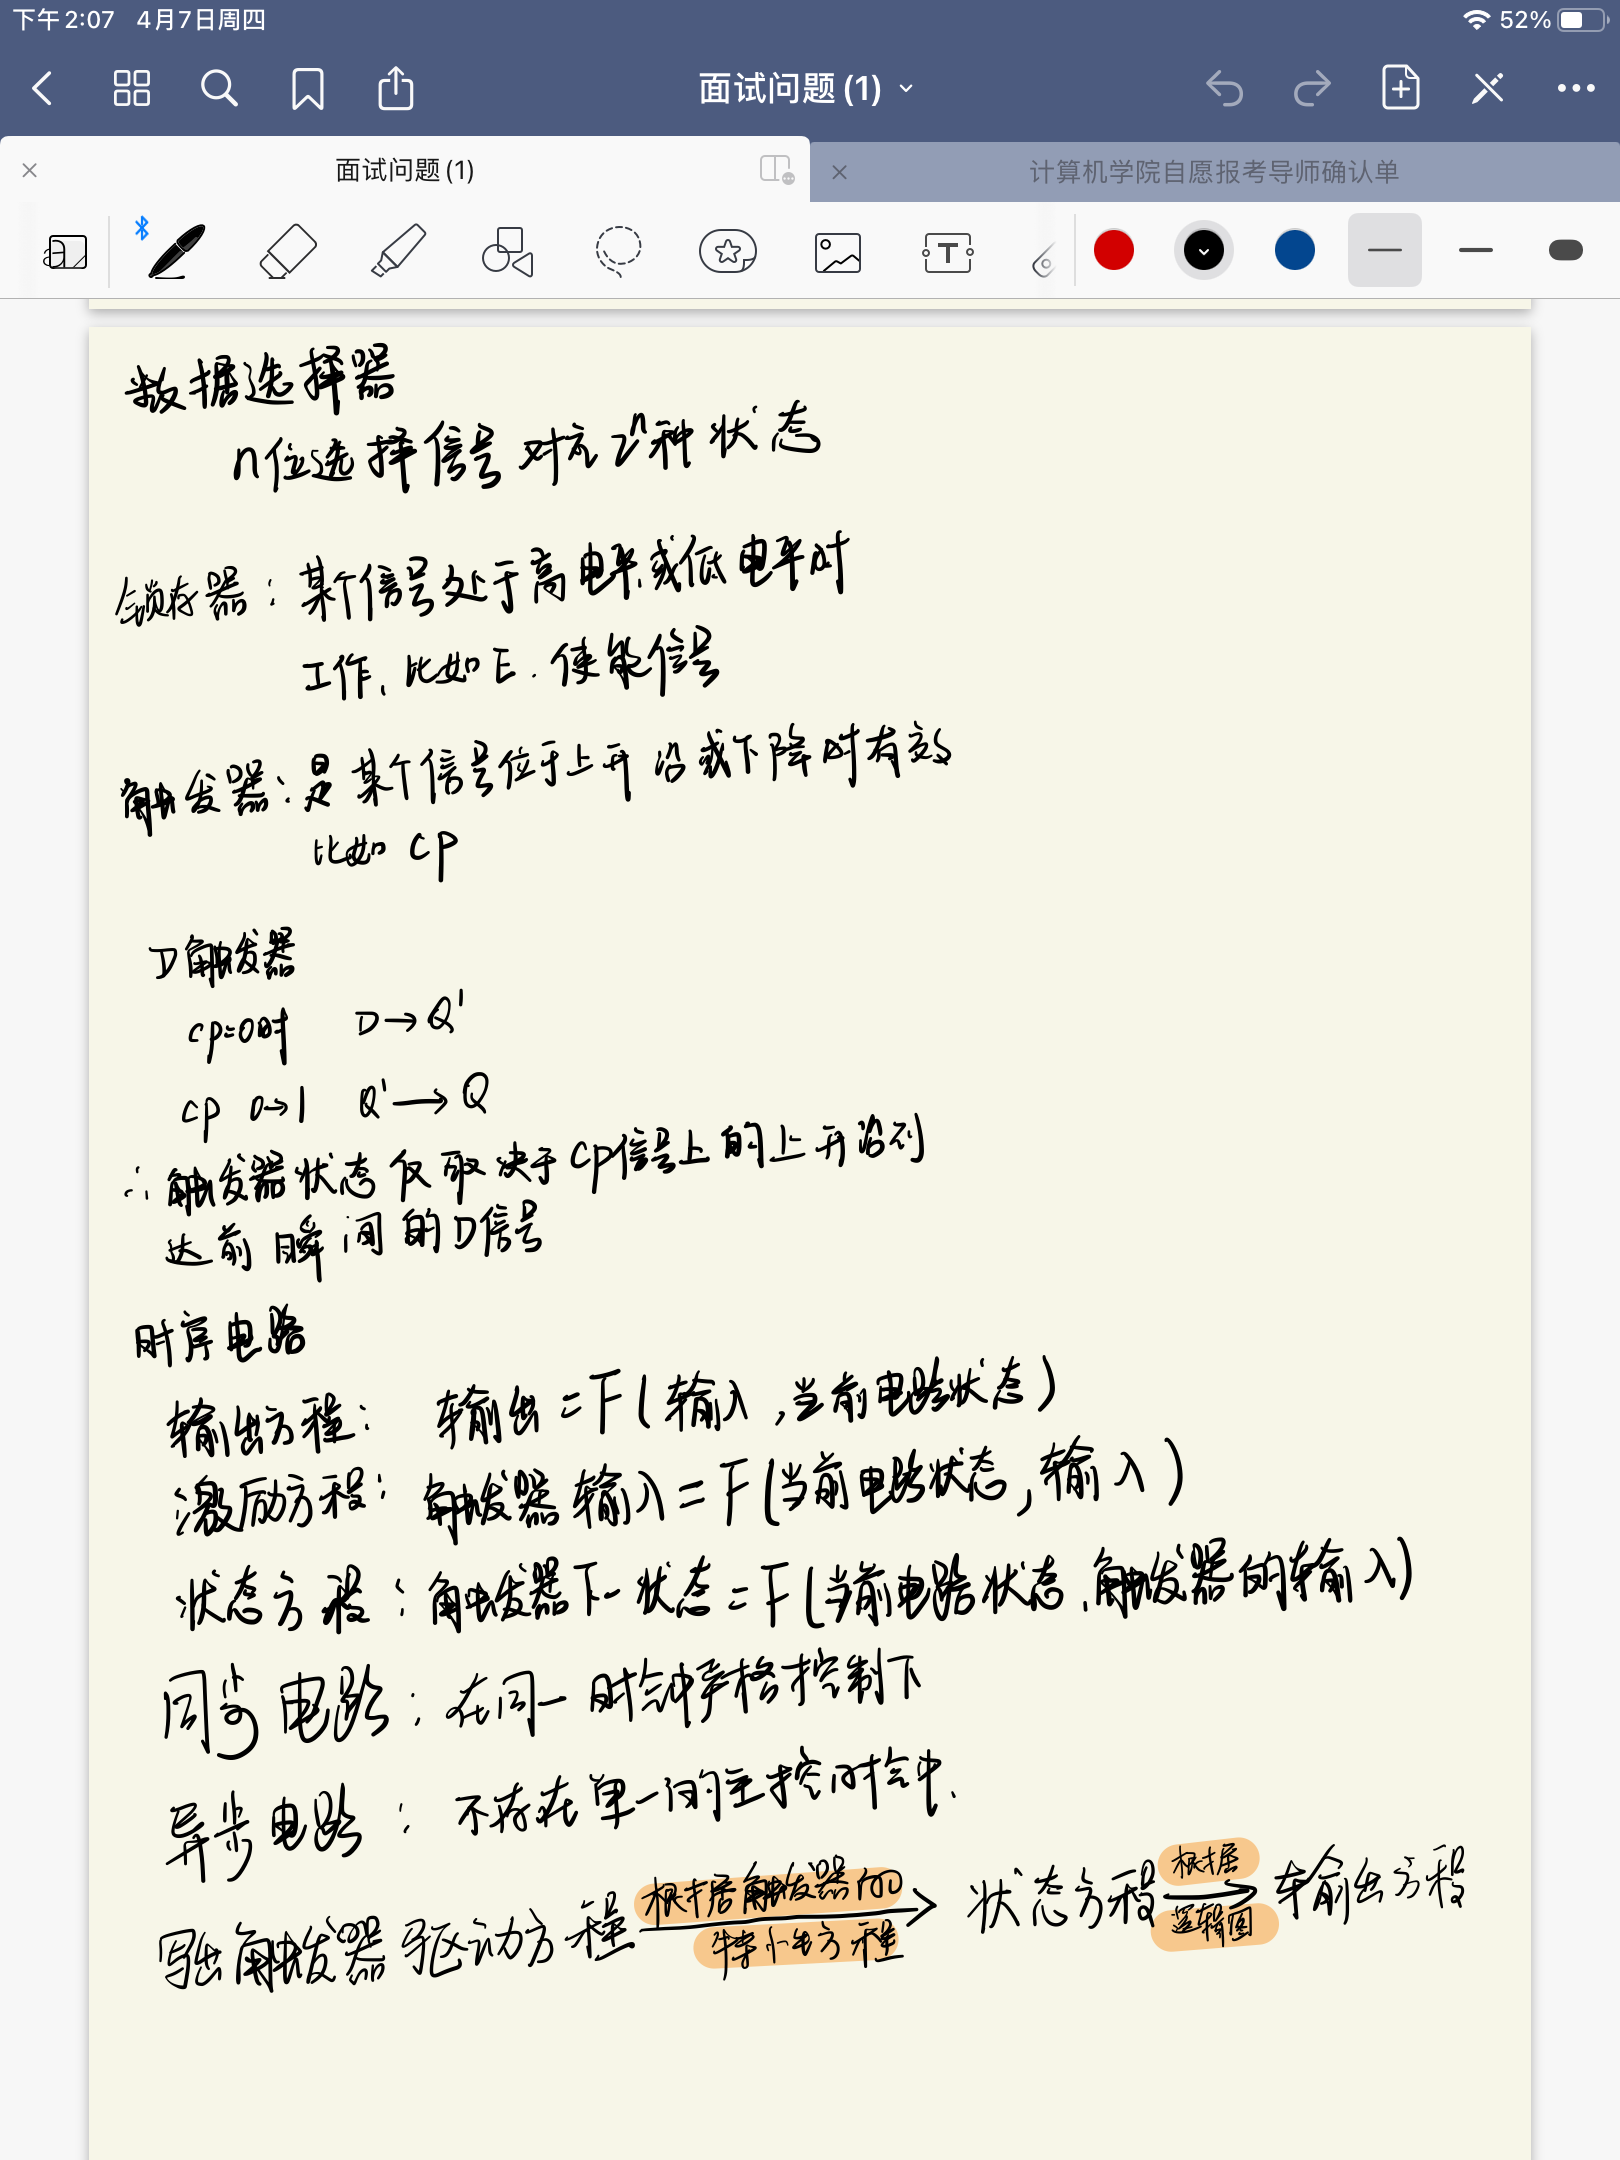 下午2:07 4月7日周四 52%
面试问题 (1)
面试问题 (1) 计算机学院自愿报考导师确认单
数据选择器
n位选择信号对应2ⁿ种状态
锁存器：某个信号处于高电平或低电平时
工作、比如E. 使能信号
触发器：是某个信号位于上升沿或下降时有效
比如 CP
D触发器
CP=0时 D→Q'
CP 0→1 Q'→Q
∴触发器状态仅取决于CP信号上的上升沿到
达前瞬间的D信号
时序电路
输出方程： 输出=F(输入,当前电路状态)
激励方程：触发器输入=F(当前电路状态,输入)
状态方程：触发器下一状态=F(当前电路状态、触发器的输入)
同步电路：在同一时钟严格控制下
异步电路： 不存在单一的主控时钟.
写出触发器驱动方程 根据触发器的特性方程→ 状态方程 根据逻辑图→ 输出方程